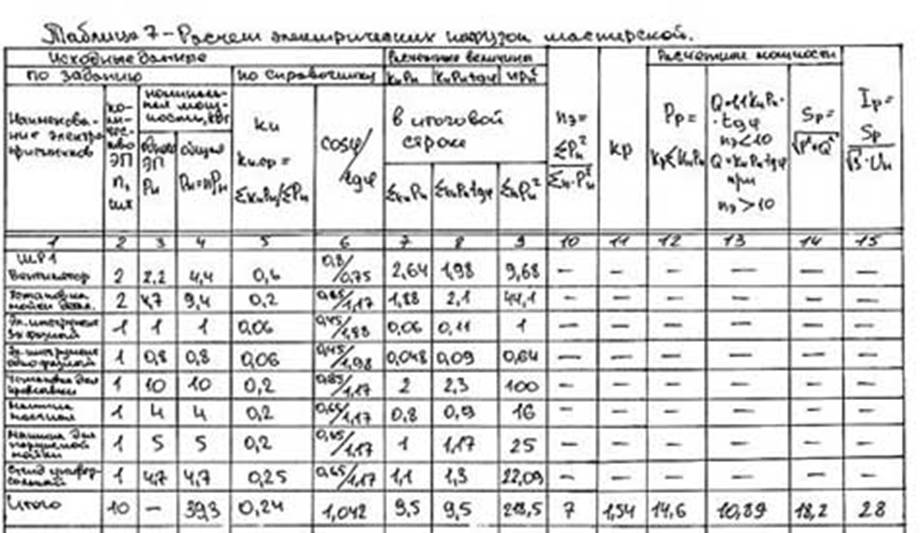 Таблица 7 – Расчет электрических нагрузок мастерской.
Исходные данные Расчетные величины Расчетные мощности
по заданию по справочнику КиРн КиРнtgφ nPн²
Наименование электроприемников
количество ЭП n, шт
номинальная мощность, кВт
одного ЭП Рн
общая Рн=nРн
Ки
Ки.ср = ΣКиРн/ΣРн
cosφ/tgφ
в итоговой строке
ΣКиРн ΣКиРнtgφ ΣnPн²
nэ= ΣPн²/Σn·Pн²
Кр
Рр= КрΣКиРн
Q=1.1КиРн·tgφ nэ<10 Q=КиРн·tgφ при nэ>10
Sр= √P²+Q²
Iр= Sр/√3·Uн
1 2 3 4 5 6 7 8 9 10 11 12 13 14 15
ШР1
Вентилятор 2 2,2 4,4 0,6 0,8/0,75 2,64 1,98 9,68 – – – – – –
Установка мойки дета. 2 4,7 9,4 0,2 0,65/1,17 1,88 2,1 44,1 – – – – – –
Эл. инструмент 3х фазный 1 1 1 0,06 0,45/1,98 0,06 0,11 1 – – – – – –
Эл. инструмент однофазный 1 0,8 0,8 0,06 0,45/1,98 0,048 0,09 0,64 – – – – – –
Установка для 1 10 10 0,2 0,65/1,17 2 2,3 100 – – – – – –
1 4 4 0,2 0,65/1,17 0,8 0,9 16 – – – – – –
Машина для наружной мойки 1 5 5 0,2 0,65/1,17 1 1,17 25 – – – – – –
Стенд универсальный 1 4,7 4,7 0,25 0,65/1,17 1,1 1,3 22,09 – – – – – –
Итого 10 – 39,3 0,24 1,042 9,5 9,5 218,5 7 1,54 14,6 10,89 18,2 28